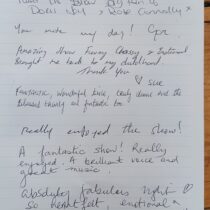 Dolly + Rose Connolly *
You made my day! Cpr.
Amazing Show Funny Classy + Emotional
Brought me back to my childhood.
Thank you
♡ Sue
Fantastic, wonderful voice, lovely dance and the
family so fantastic to.
Really enjoyed the show!
A fantastic show! Really
engaged. A brilliant voice and
great music.
Absolutely fabulous night ♡
so heartfelt, emotional